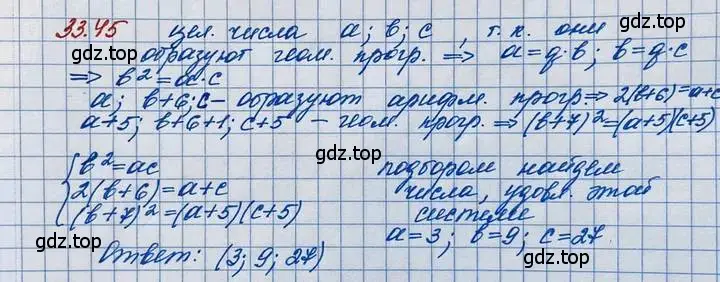 33.45 цел. числа a; b; c, т.к. они
образуют геом. прогр. => a=q·b; b=q·c
=> b²=a·c
a; b+6; c - образуют арифм. прогр.=> 2(b+6)=a+c
a+5; b+6+1; c+5 - геом. прогр.=> (b+7)²=(a+5)(c+5)
{b²=ac подбором найдем
2(b+6)=a+c числа, удовл. этой
(b+7)²=(a+5)(c+5) системе
a=3; b=9; c=27
Ответ: (3; 9; 27)
gdz.top
gdz.top
gdz.top
gdz.top
gdz.top
gdz.top
gdz.top
gdz.top
gdz.top